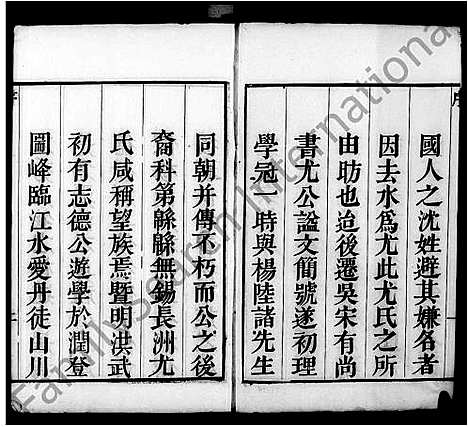 國人之沈姓避其嫌名者
因去水爲尤此尤氏之所
由昉也迨後遷吳宋有尚
書尤公謚文簡號遂初理
學冠一時與楊陸諸先生
同朝并傳不朽而公之後
裔科第緜緜無錫長洲尤
氏咸稱望族焉暨明洪武
初有志德公遊學於潤登
圌峰臨江水愛丹徒山川
FamilySearch International